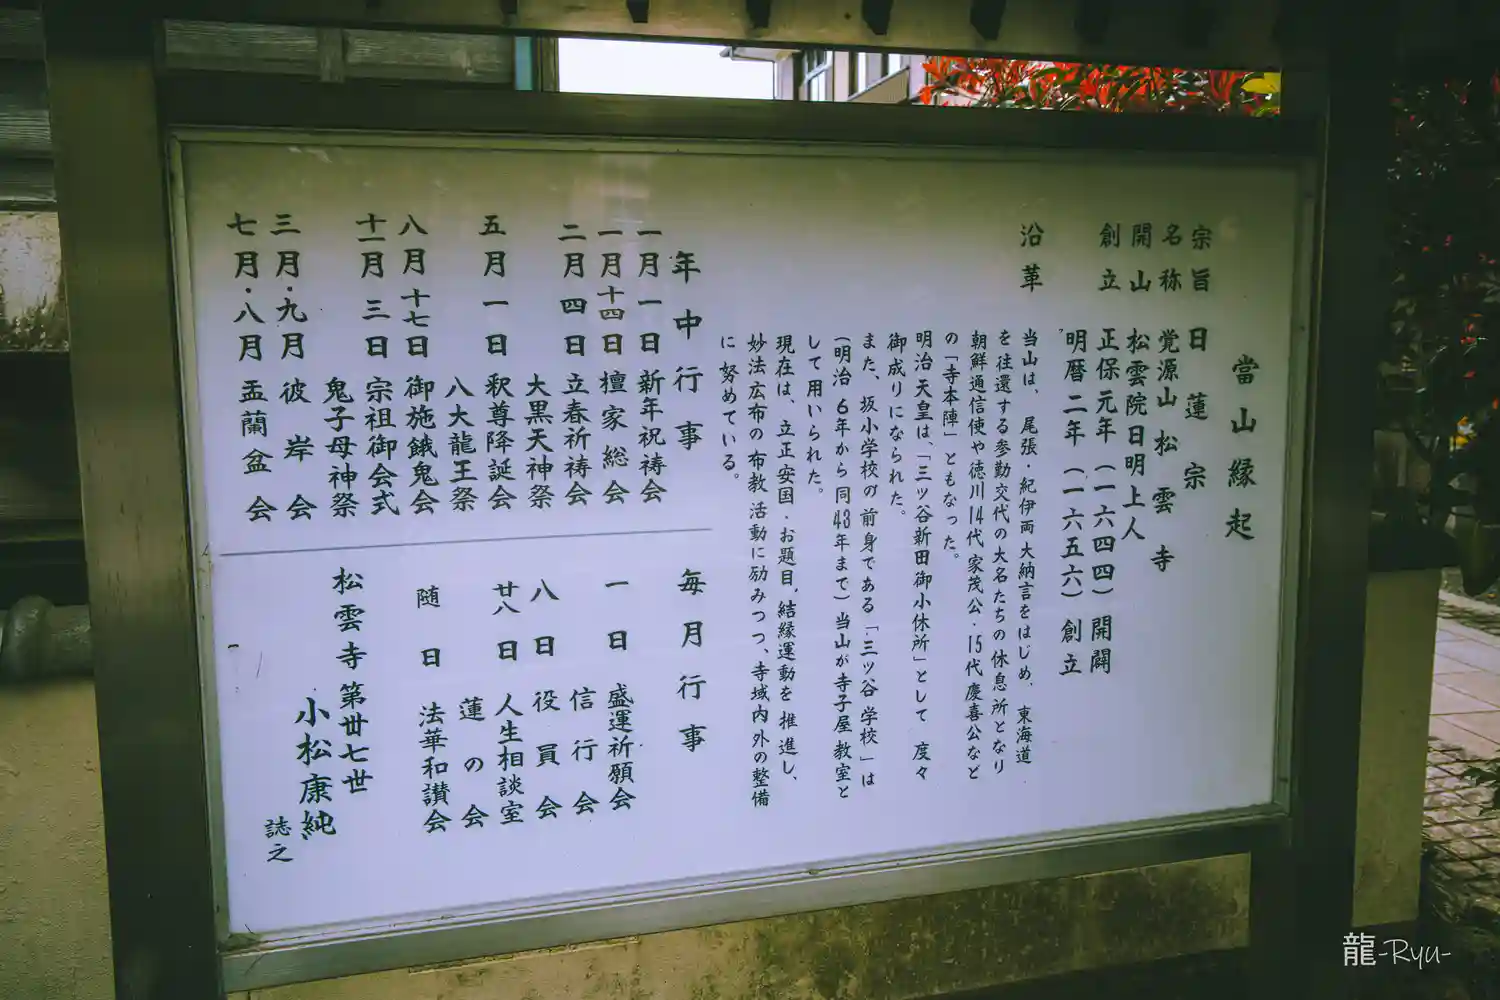 當山縁起
宗旨 日蓮宗
名称 覚源山 松雲寺
開山 松雲院日明上人
創立 正保元年（一六四四）開闢
明暦二年（一六五六）創立
沿革
当山は、尾張・紀伊両大納言をはじめ、東海道
を往還する参勤交代の大名たちの休息所となり
朝鮮通信使や徳川14代家茂公・15代慶喜公など
の「寺本陣」ともなった。
明治天皇は、「三ツ谷新田御小休所」として度々
御成りになられた。
また、坂小学校の前身である「三ツ谷学校」は
（明治6年から同43年まで）当山が寺子屋教室と
して用いられた。
現在は、立正安国・お題目、結縁運動を推進し、
妙法広布の布教活動に励みつつ、寺域内外の整備
に努めている。
年中行事
一月一日 新年祝祷会
一月十四日 檀家総会
二月四日 立春祈祷会
大黒天神祭
五月一日 釈尊降誕会
八大龍王祭
八月十七日 御施餓鬼会
十一月三日 宗祖御会式
鬼子母神祭
三月・九月 彼岸会
七月・八月 盂蘭盆会
毎月行事
一日 盛運祈願会
信行会
八日 役員会
廿八日 人生相談室
蓮の会
随日 法華和讃会
松雲寺第丗七世
小松康純
誌之
龍-Ryu-